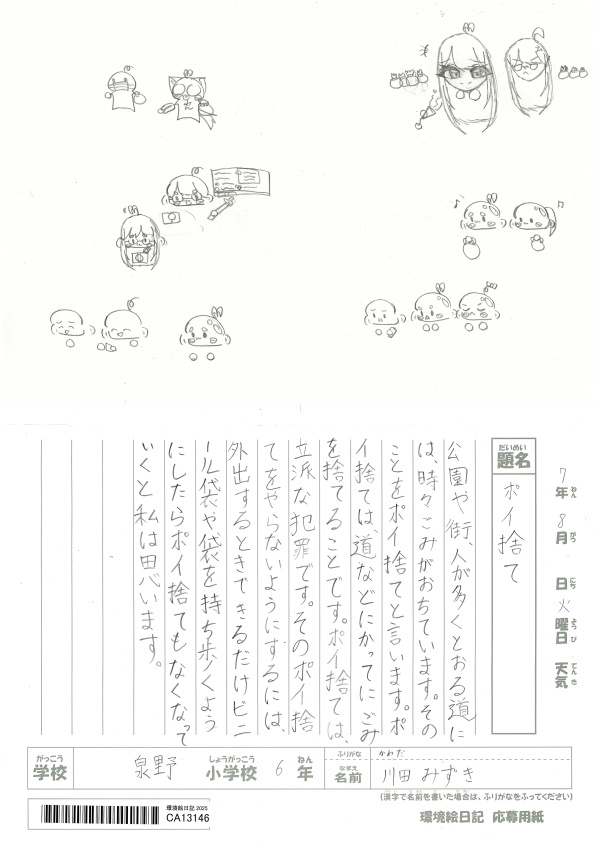 わん
♪
♪
7年ねん 8月がつ 日にち 火曜日ようび 天気てんき
だいめい
題名
ポイ捨て
公園や街、人が多くとおる道に
は、時々ごみがおちています。その
ことをポイ捨てと言います。ポ
イ捨ては、道などにかってにごみ
を捨てることです。ポイ捨ては、
立派な犯罪です。そのポイ捨
てをやらないようにするには、
外出するときできるだけビニ
ール袋や袋を持ち歩くよう
にしたらポイ捨てもなくなって
いくと私は思います。
がっこう
学校
泉野
しょうがっこう
小学校
6
ねん
年
ふりがな
かわだ
なまえ
名前
川田 みずき
(漢字で名前を書いた場合は、ふりがなをふってください)
環境絵日記 2025
CA13146
環境絵日記 応募用紙